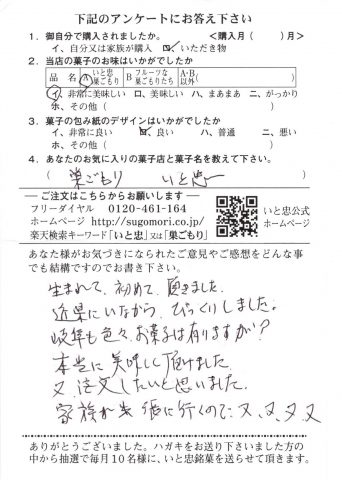 下記のアンケートにお答え下さい
1．御自分で購入されましたか。 <購入月（ ）月>
イ、自分又は家族が購入 ロ、いただき物
2．当店の菓子のお味はいかがでしたか
品 名 A いと忠巣ごもり B フルーツな巣ごもりたち A・B以外（ ）
イ、非常に美味しい ロ、美味しい ハ、まあまあ ニ、がっかり
ホ、その他（ ）
3．菓子の包み紙のデザインはいかがでしたか
イ、非常に良い ロ、良い ハ、普通 ニ、悪い
ホ、その他（ ）
4．あなたのお気に入りの菓子店と菓子名を教えて下さい。
（ 巣ごもり いと忠 ）
ご注文はこちらからお願いします
フリーダイヤル 0120-461-164
ホームページ http://sugomori.co.jp/
楽天検索キーワード「いと忠」又は「巣ごもり」
いと忠公式
ホームページ
あなた様がお気づきになられたご意見やご感想をどんな事
でも結構ですのでお書き下さい。
生まれて、初めて、頂きました。
近県にいながら、びっくりしました。
岐阜も色々、お菓子は有りますが？
本当に美味しく頂けました
又、注文したいと思いました。
家族が 行くので、又、又、又、又
ありがとうございました。ハガキをお送り下さいました方の
中から抽選で毎月10名様に、いと忠銘菓を送らせて頂きます。